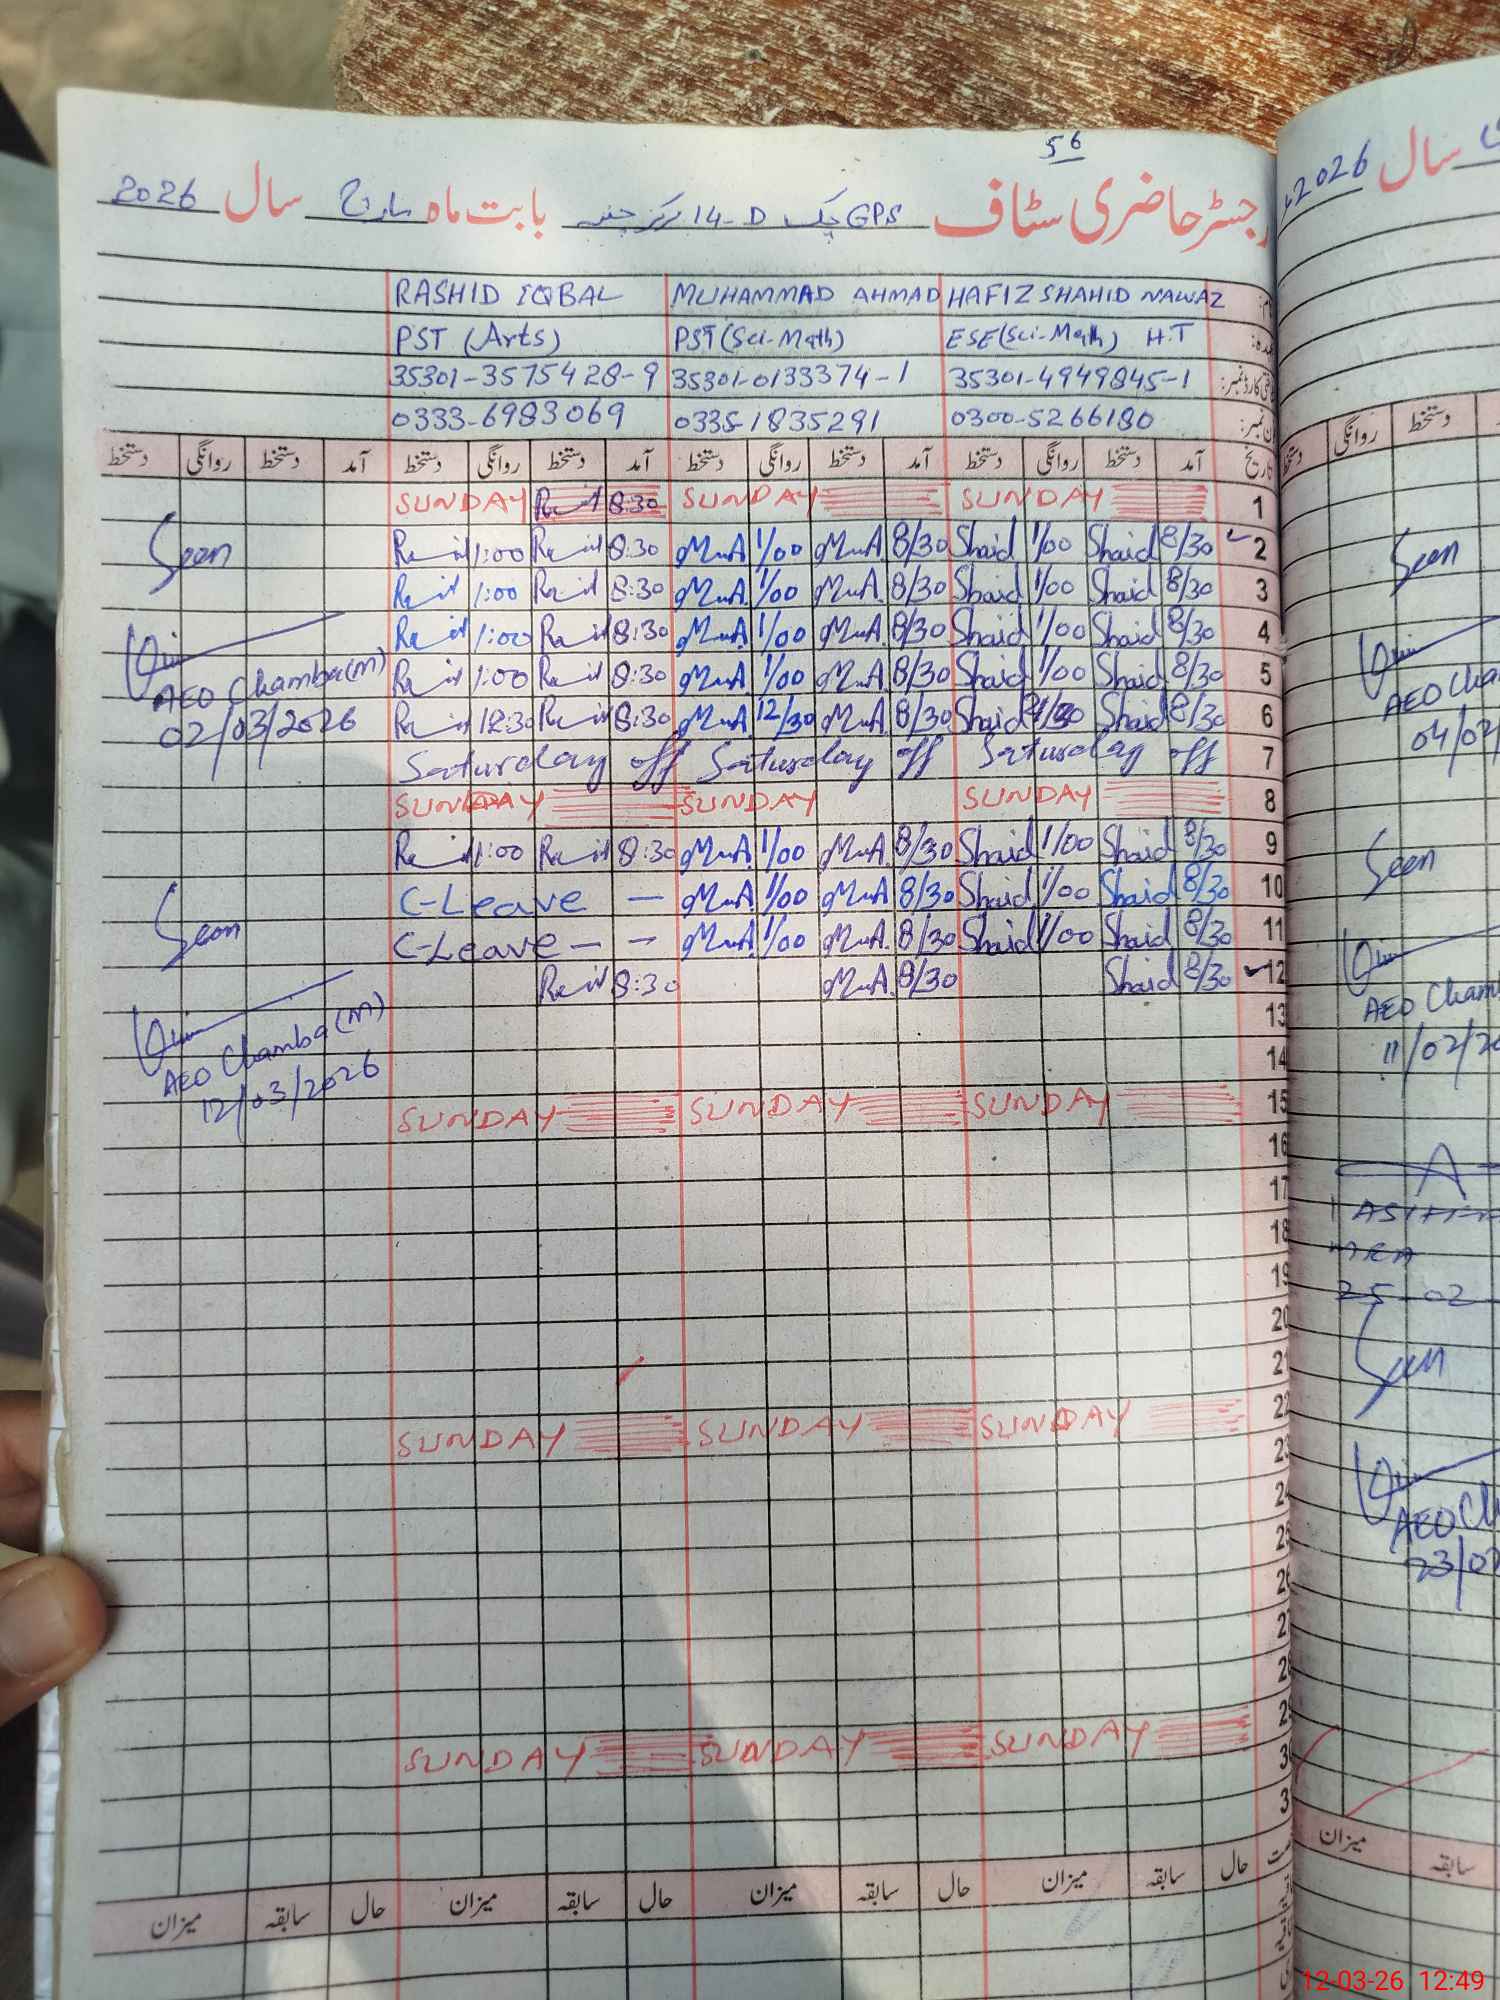 56
رجسٹر حاضری سٹاف GPS چک 14-D مرکز چنبہ بابت ماہ مارچ سال 2026
RASHID IQBAL MUHAMMAD AHMAD HAFIZ SHAHID NAWAZ
PST (Arts) PST (Sci-Math) ESE (Sci-Math) H.T
35301-3575428-9 35301-0133374-1 35301-4949845-1
0333-6983069 0335-1835291 0300-5266180
تاریخ آمد دستخط روانگی دستخط آمد دستخط روانگی دستخط آمد دستخط روانگی دستخط آمد دستخط روانگی دستخط
SUNDAY 8:30 SUNDAY SUNDAY 1
1:00 8:30 M.A. 1/00 M.A. 8/30 Shaid 1/00 Shaid 8/30 2
1:00 8:30 M.A. 1/00 M.A. 8/30 Shaid 1/00 Shaid 8/30 3
1:00 8:30 M.A. 1/00 M.A. 8/30 Shaid 1/00 Shaid 8/30 4
1:00 8:30 M.A. 1/00 M.A. 8/30 Shaid 1/00 Shaid 8/30 5
12:30 8:30 M.A. 12/30 M.A. 8/30 Shaid Shaid 8/30 6
Saturday off Saturday off Saturday off 7
SUNDAY SUNDAY SUNDAY 8
1:00 8:30 M.A. 1/00 M.A. 8/30 Shaid 1/00 Shaid 8/30 9
C-Leave — M.A. 1/00 M.A. 8/30 Shaid 1/00 Shaid 8/30 10
C-Leave — — M.A. 1/00 M.A. 8/30 Shaid 1/00 Shaid 8/30 11
8:30 M.A. 8/30 Shaid 8/30 12
13
14
SUNDAY SUNDAY SUNDAY 15
16
17
18
19
20
21
SUNDAY SUNDAY SUNDAY 22
23
24
25
26
27
28
SUNDAY SUNDAY SUNDAY 29
حال سابقہ میزان حال سابقہ میزان حال سابقہ میزان حال سابقہ میزان
Seen
AEO Chamba (M)
02/03/2026
Seen
AEO Chamba (M)
12/03/2026
سال 2026
دستخط روانگی دستخط
Seen
AEO Cha
04/02/
Seen
AEO Chamb
11/02/20
A
25-02-
Seen
AEO Ch
23/02
میزان
سابقہ
12-03-26 12:49